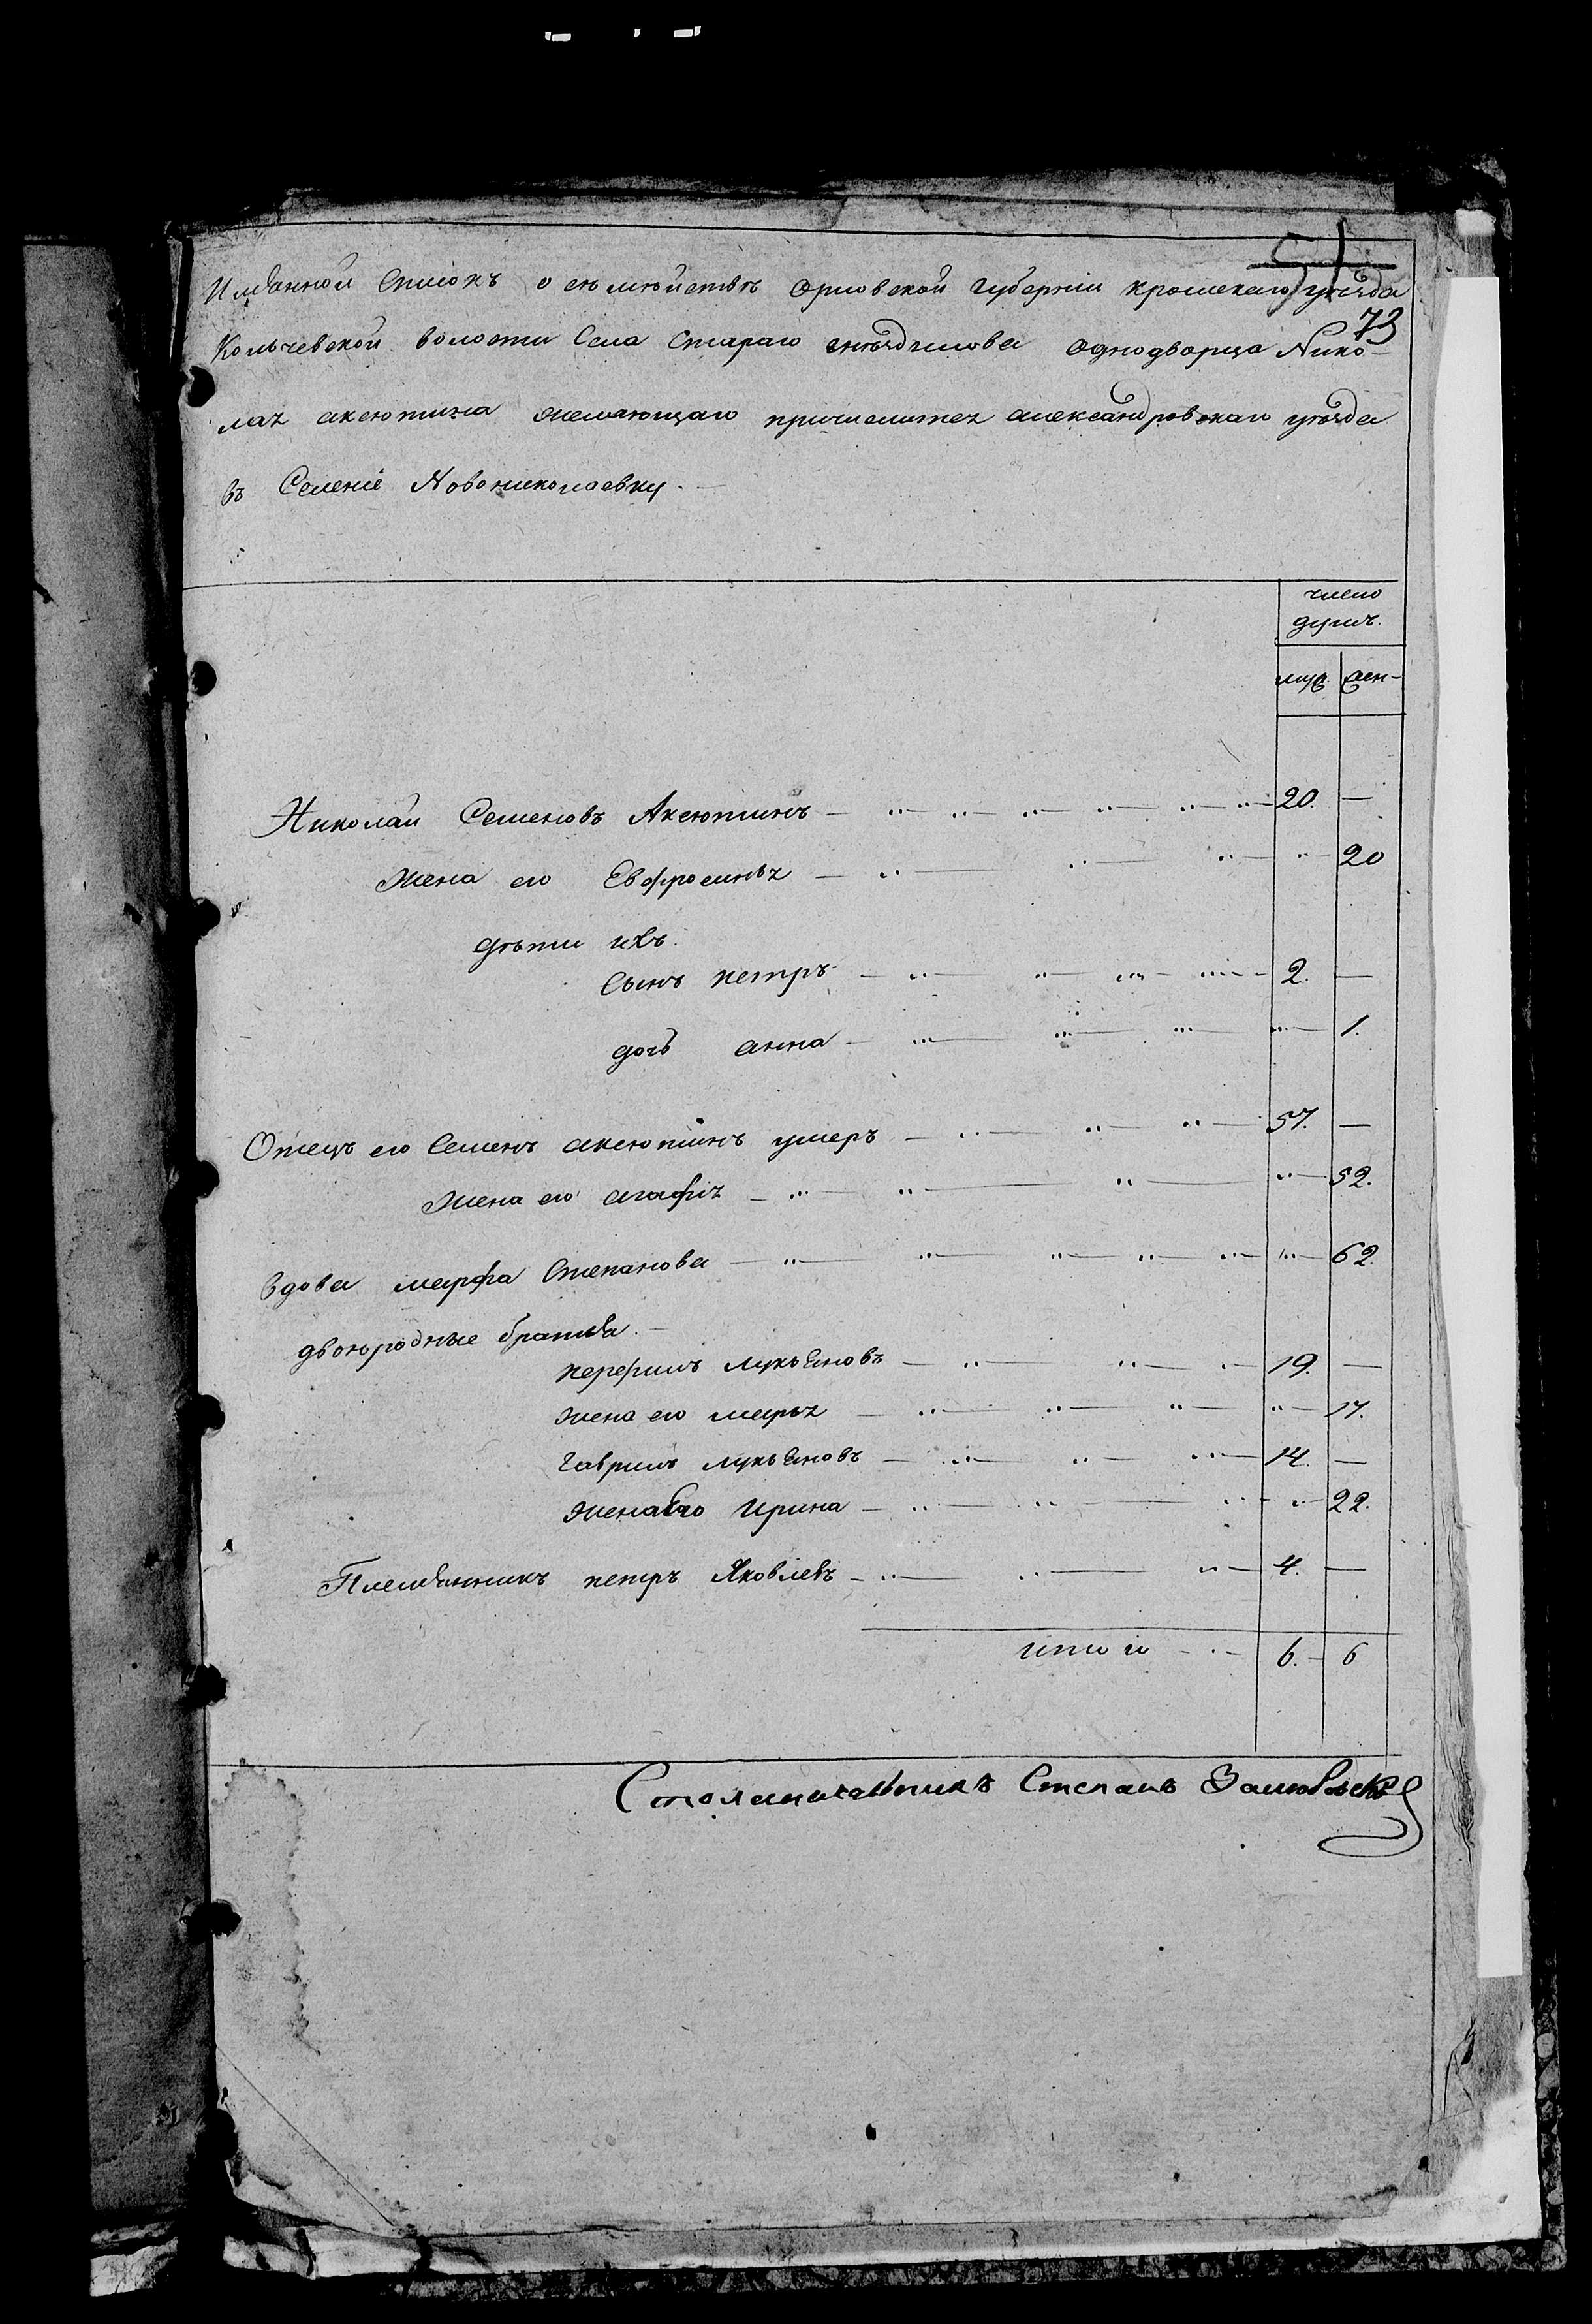 51
73
Имѣнной Списокъ о семѣйствѣ Орловской Губерніи кромскаго уѣзда
Кольчевской волости Села Стараго гнѣздилова Однодворца Нико-
лая аксютина желающаго причислитея александровскаго уѣзда
въ Селеніе Новониколаевку.
число
душъ.
муж. жен-
Николай Семеновъ Аксютинъ 20. —
Жена его Евфросинья 20
дѣти ихъ.
Сынъ петръ 2. —
дочь анна 1.
Отецъ его Семенъ аксютинъ умеръ 57. —
Жена его агафія 52.
Вдова марфа Степанова 62.
двоюродные братья.
перфилъ лукьяновъ 19. —
жена его марья 17.
гаврилъ лукьяновъ 14. —
Жена Его Ирина 22.
Племянникъ петръ Яковлевъ 4. —
итого 6. 6
Столоначальникъ Степанъ